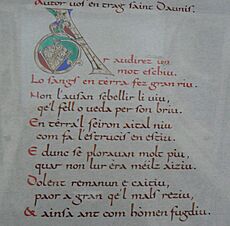 Autor vos en trag saint Daunis.
Ar audirez un
mot eschiu.
Lo sangs en terra fez gran riu.
Non l'ausan sebellir li viu,
qe'l fell o veda per son briu.
En terra'l seiron aital niu
com fa l'estrucis en estiu.
E dunc se ploravan molt piu,
quar non lur era meilz aiziu.
Dolent remanun e caitiu,
paor a gran qe'l mals reziu,
& ainsa ant com homen fugdiu.